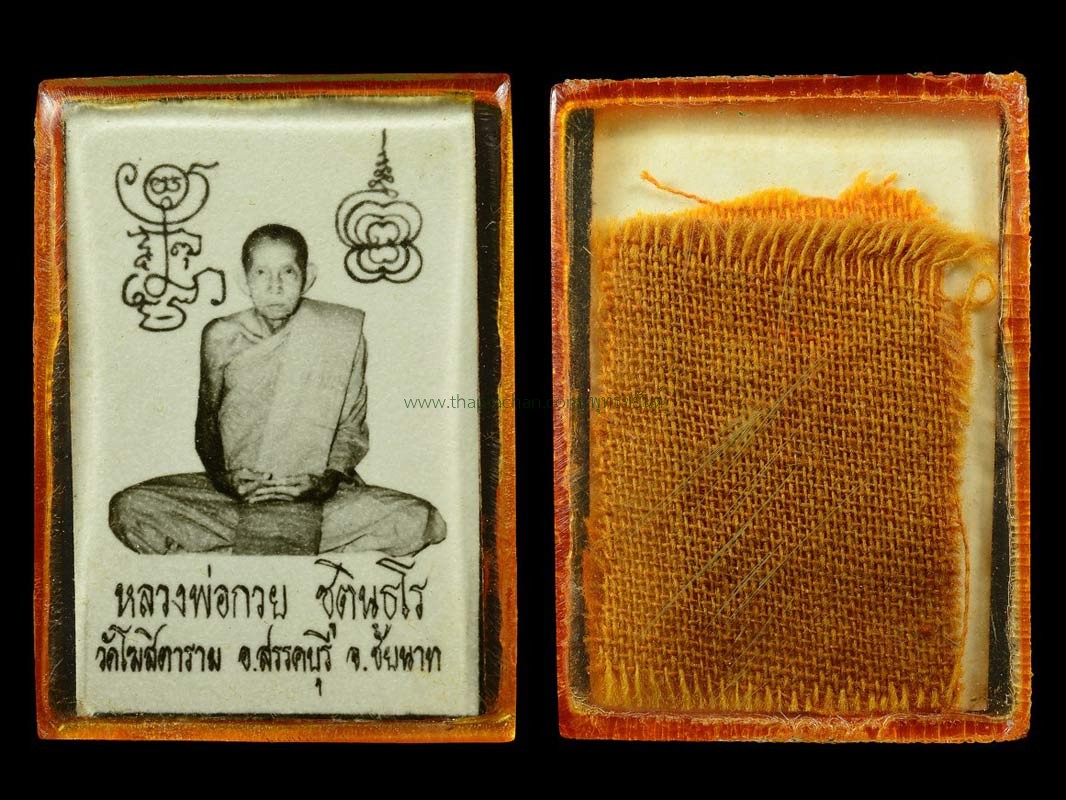 หลวงพ่อกวย ชุตินฺธโร
วัดโฆสิตาราม อ.สรรคบุรี จ.ชัยนาท